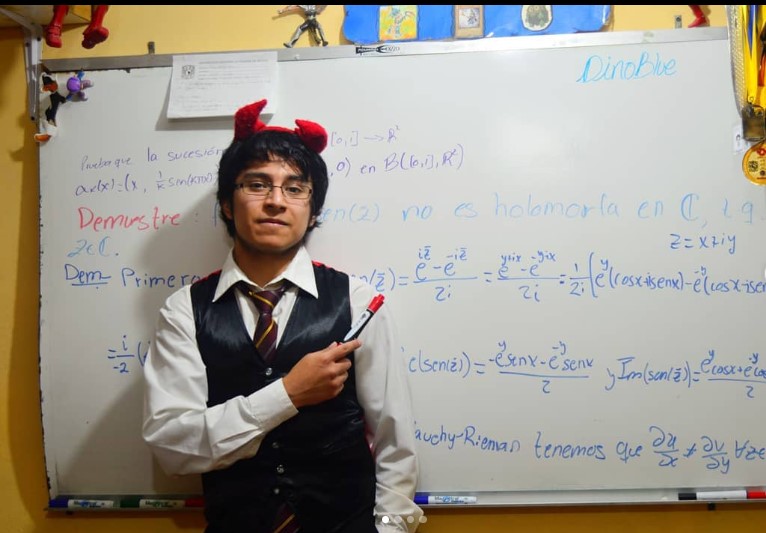 DinoBlue
Pruebe que la sucesión [0,1] → ℝ²
aₖ(x) = (x, 1/k sen(kπx) , 0) en B([0,1], ℝ²)
Demuestre : en(z) no es holomorfa en ℂ,
z∈ℂ.
z=x+iy
Dem Primero n(z̄) = (e^{iz̄} - e^{-iz̄})/2i = (e^{y+ix} - e^{-y-ix})/2i = 1/2i [e^y(cosx+isenx)-e^{-y}(cosx-isen
= i/-2 ( e(sen(z̄)) = (-e^y senx - e^{-y} senx)/2 y Im(sen(z̄)) = (e^y cosx + e^{-y} cos)/2
auchy-Rieman tenemos que ∂u/∂x ≠ ∂v/∂y ∀z∈